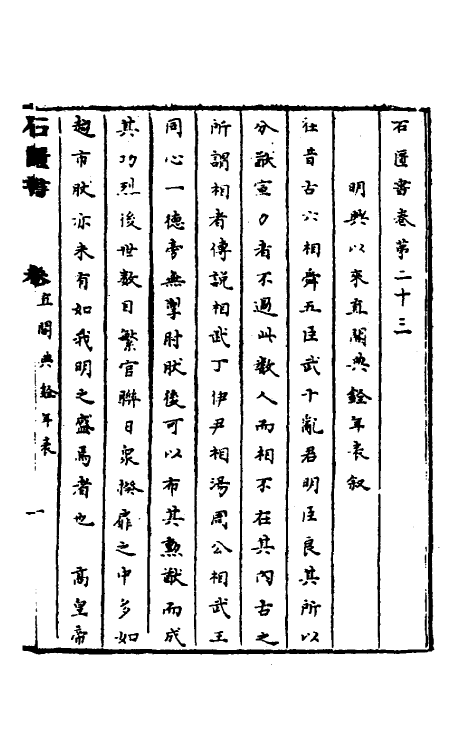 石匱書卷第二十三
明興以來直閣典銓年表叙
往昔古六相舜五臣武十亂君明臣良其所以
分猷宣力者不過此數人而相不在其內古之
所謂相者傅說相武丁伊尹相湯周公相武王
同心一德旁無掣肘肰後可以布其勲猷而成
其功烈後世數目繁官聯日衆揆席之中多如
趨市肰亦未有如我明之盛焉者也　高皇帝
石匱書　卷　直閣典銓年表　一